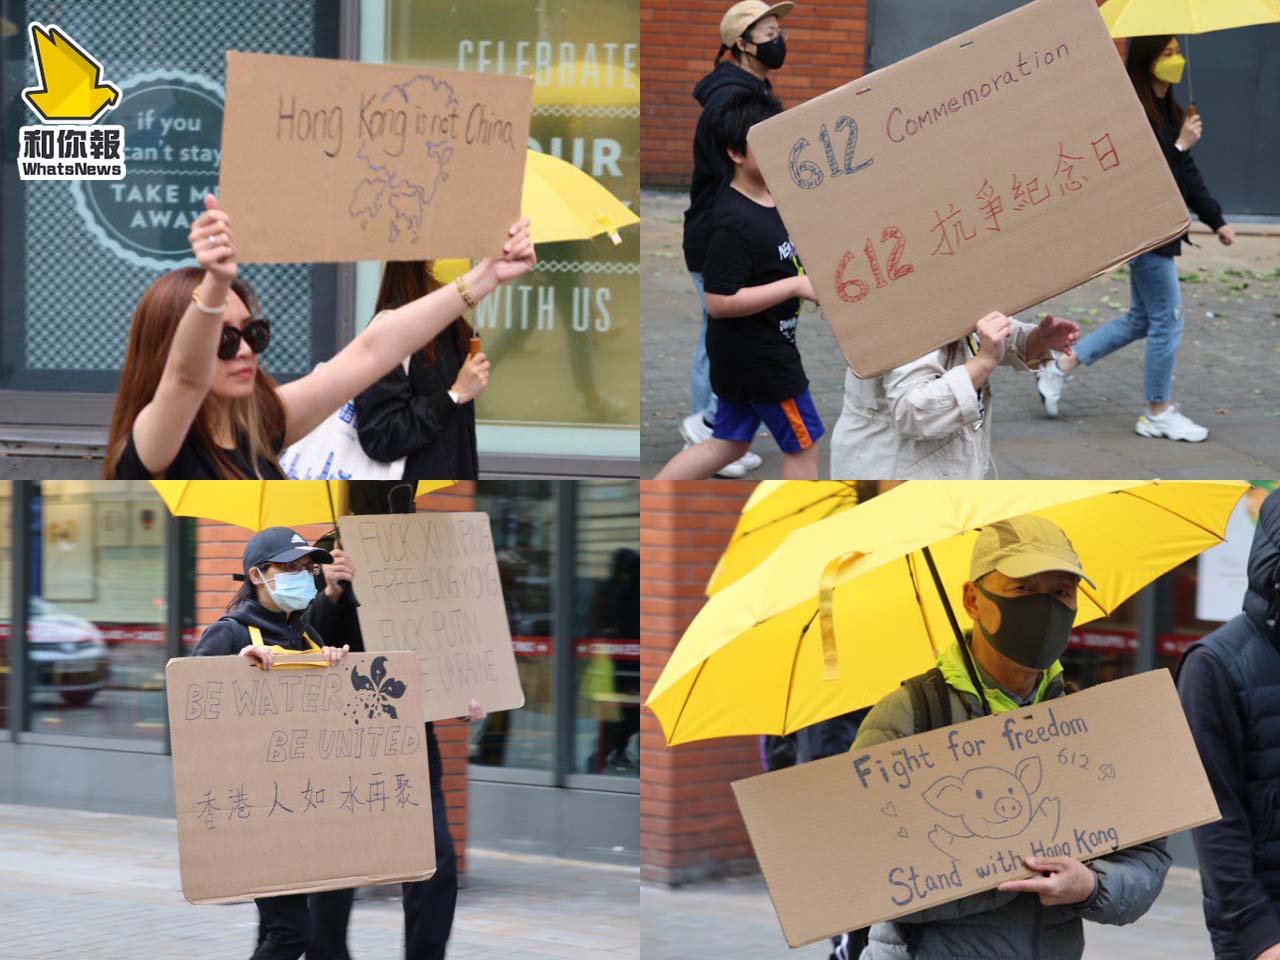 和你報
WhatsNews
if you
can't stay
TAKE ME
AWAY
CELEBRATE
OUR
WITH US
Hong Kong is not China
612 Commemoration
612 抗爭紀念日
FUCK XI JINPING
FREE HONG KONG
FUCK PUTIN
E UKRAINE
BE WATER
BE UNITED
香港人如水再聚
Fight for freedom
612
Stand with Hong Kong